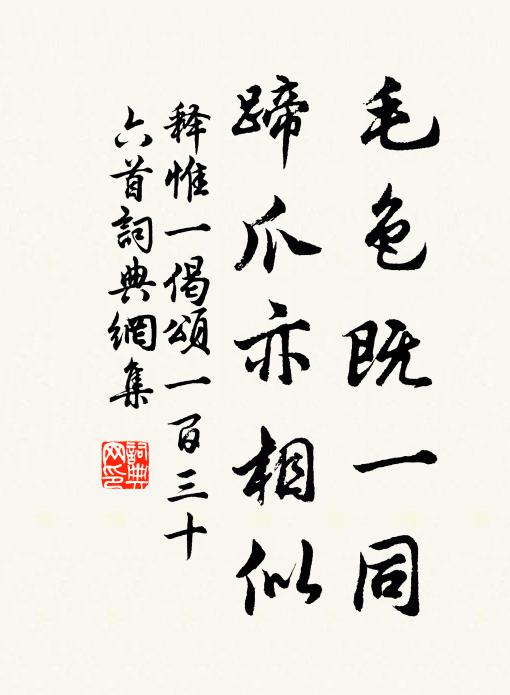 毛色既一同
蹄爪亦相似
释惟一偈頌一百三十
六首詞典網集
詞典网印